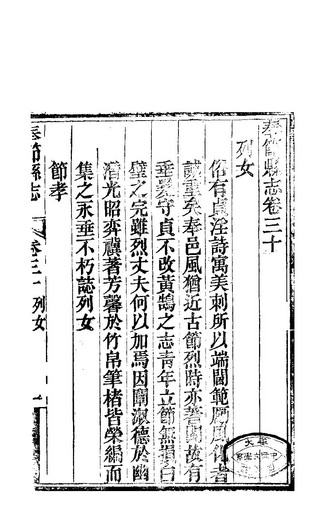 奉節縣志卷三十
列女
俗有貞淫詩寓美刺所以端閫範厲風俗者
誠重矣奉邑風猶近古節烈時亦著聞故有
垂髦守貞不改黃鵠之志青年立節無損白
璧之完雖烈丈夫何以加焉因闡淑德於幽
潛光昭弈禩著芳馨於竹帛筆楮皆榮編而
集之永垂不朽誌列女
節孝
奉節縣志
卷三十 列女
一